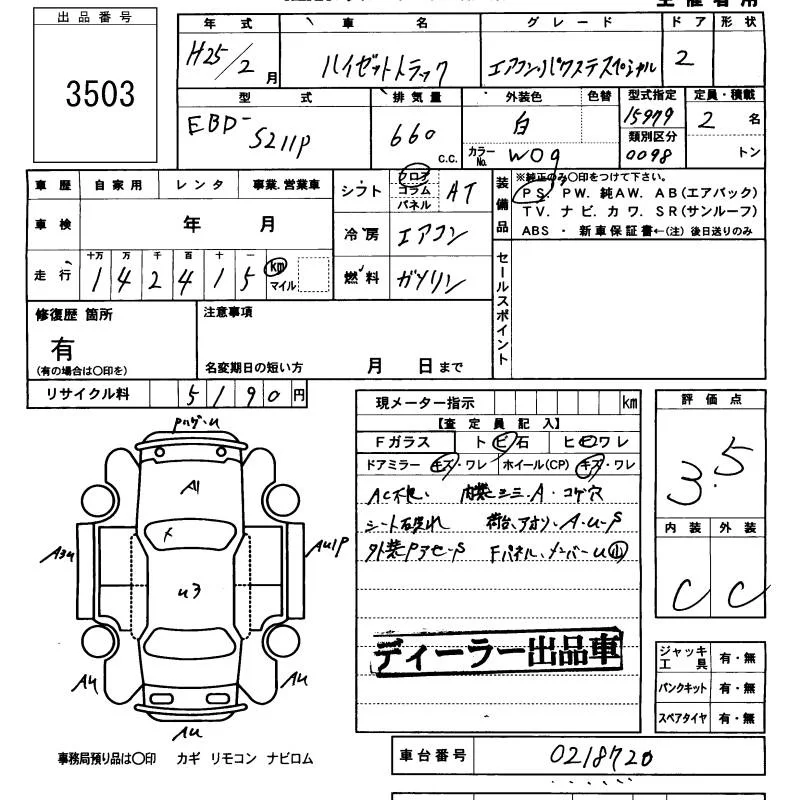 出品番号
3503
年式 車名 グレード ドア 形状
H25/2月 ハイゼットトラック エアコン・パワステスペシャル 2
型式 排気量 外装色 色替 型式指定 定員・積載
EBD-S211P 660 c.c. 白 15979 2名
カラーNo. W09 類別区分 0098 トン
車歴 自家用 レンタ 事業.営業車
シフト フロア コラム パネル AT
装備品 ※純正のみ〇印をつけて下さい。
PS. PW. 純AW. AB(エアバック)
TV. ナビ. カワ. SR(サンルーフ)
ABS ・ 新車保証書←(注) 後日送りのみ
車検 年 月
冷房 エアコン
走行 十万 万 千 百 十 一
142415 km マイル
燃料 ガソリン
セールスポイント
修復歴 箇所
有
(有の場合は〇印を)
注意事項
名変期日の短い方 月 日まで
リサイクル料 5190円
現メーター指示 km
【査定員記入】
Fガラス ト ビ 石 ヒビワレ
ドアミラー キズ・ワレ ホイール(CP) キズ・ワレ
AC不良、 内装シミ・A・コゲ穴
シート
外装
Fパネル、メンバーU
ディーラー出品車
評価点
3.5
内装 外装
C C
A1
U3
A3U
AU1P
AU AU
AU
ジャッキ工具 有・無
パンクキット 有・無
スペアタイヤ 有・無
事務局預り品は〇印 カギ リモコン ナビロム
車台番号 0218720